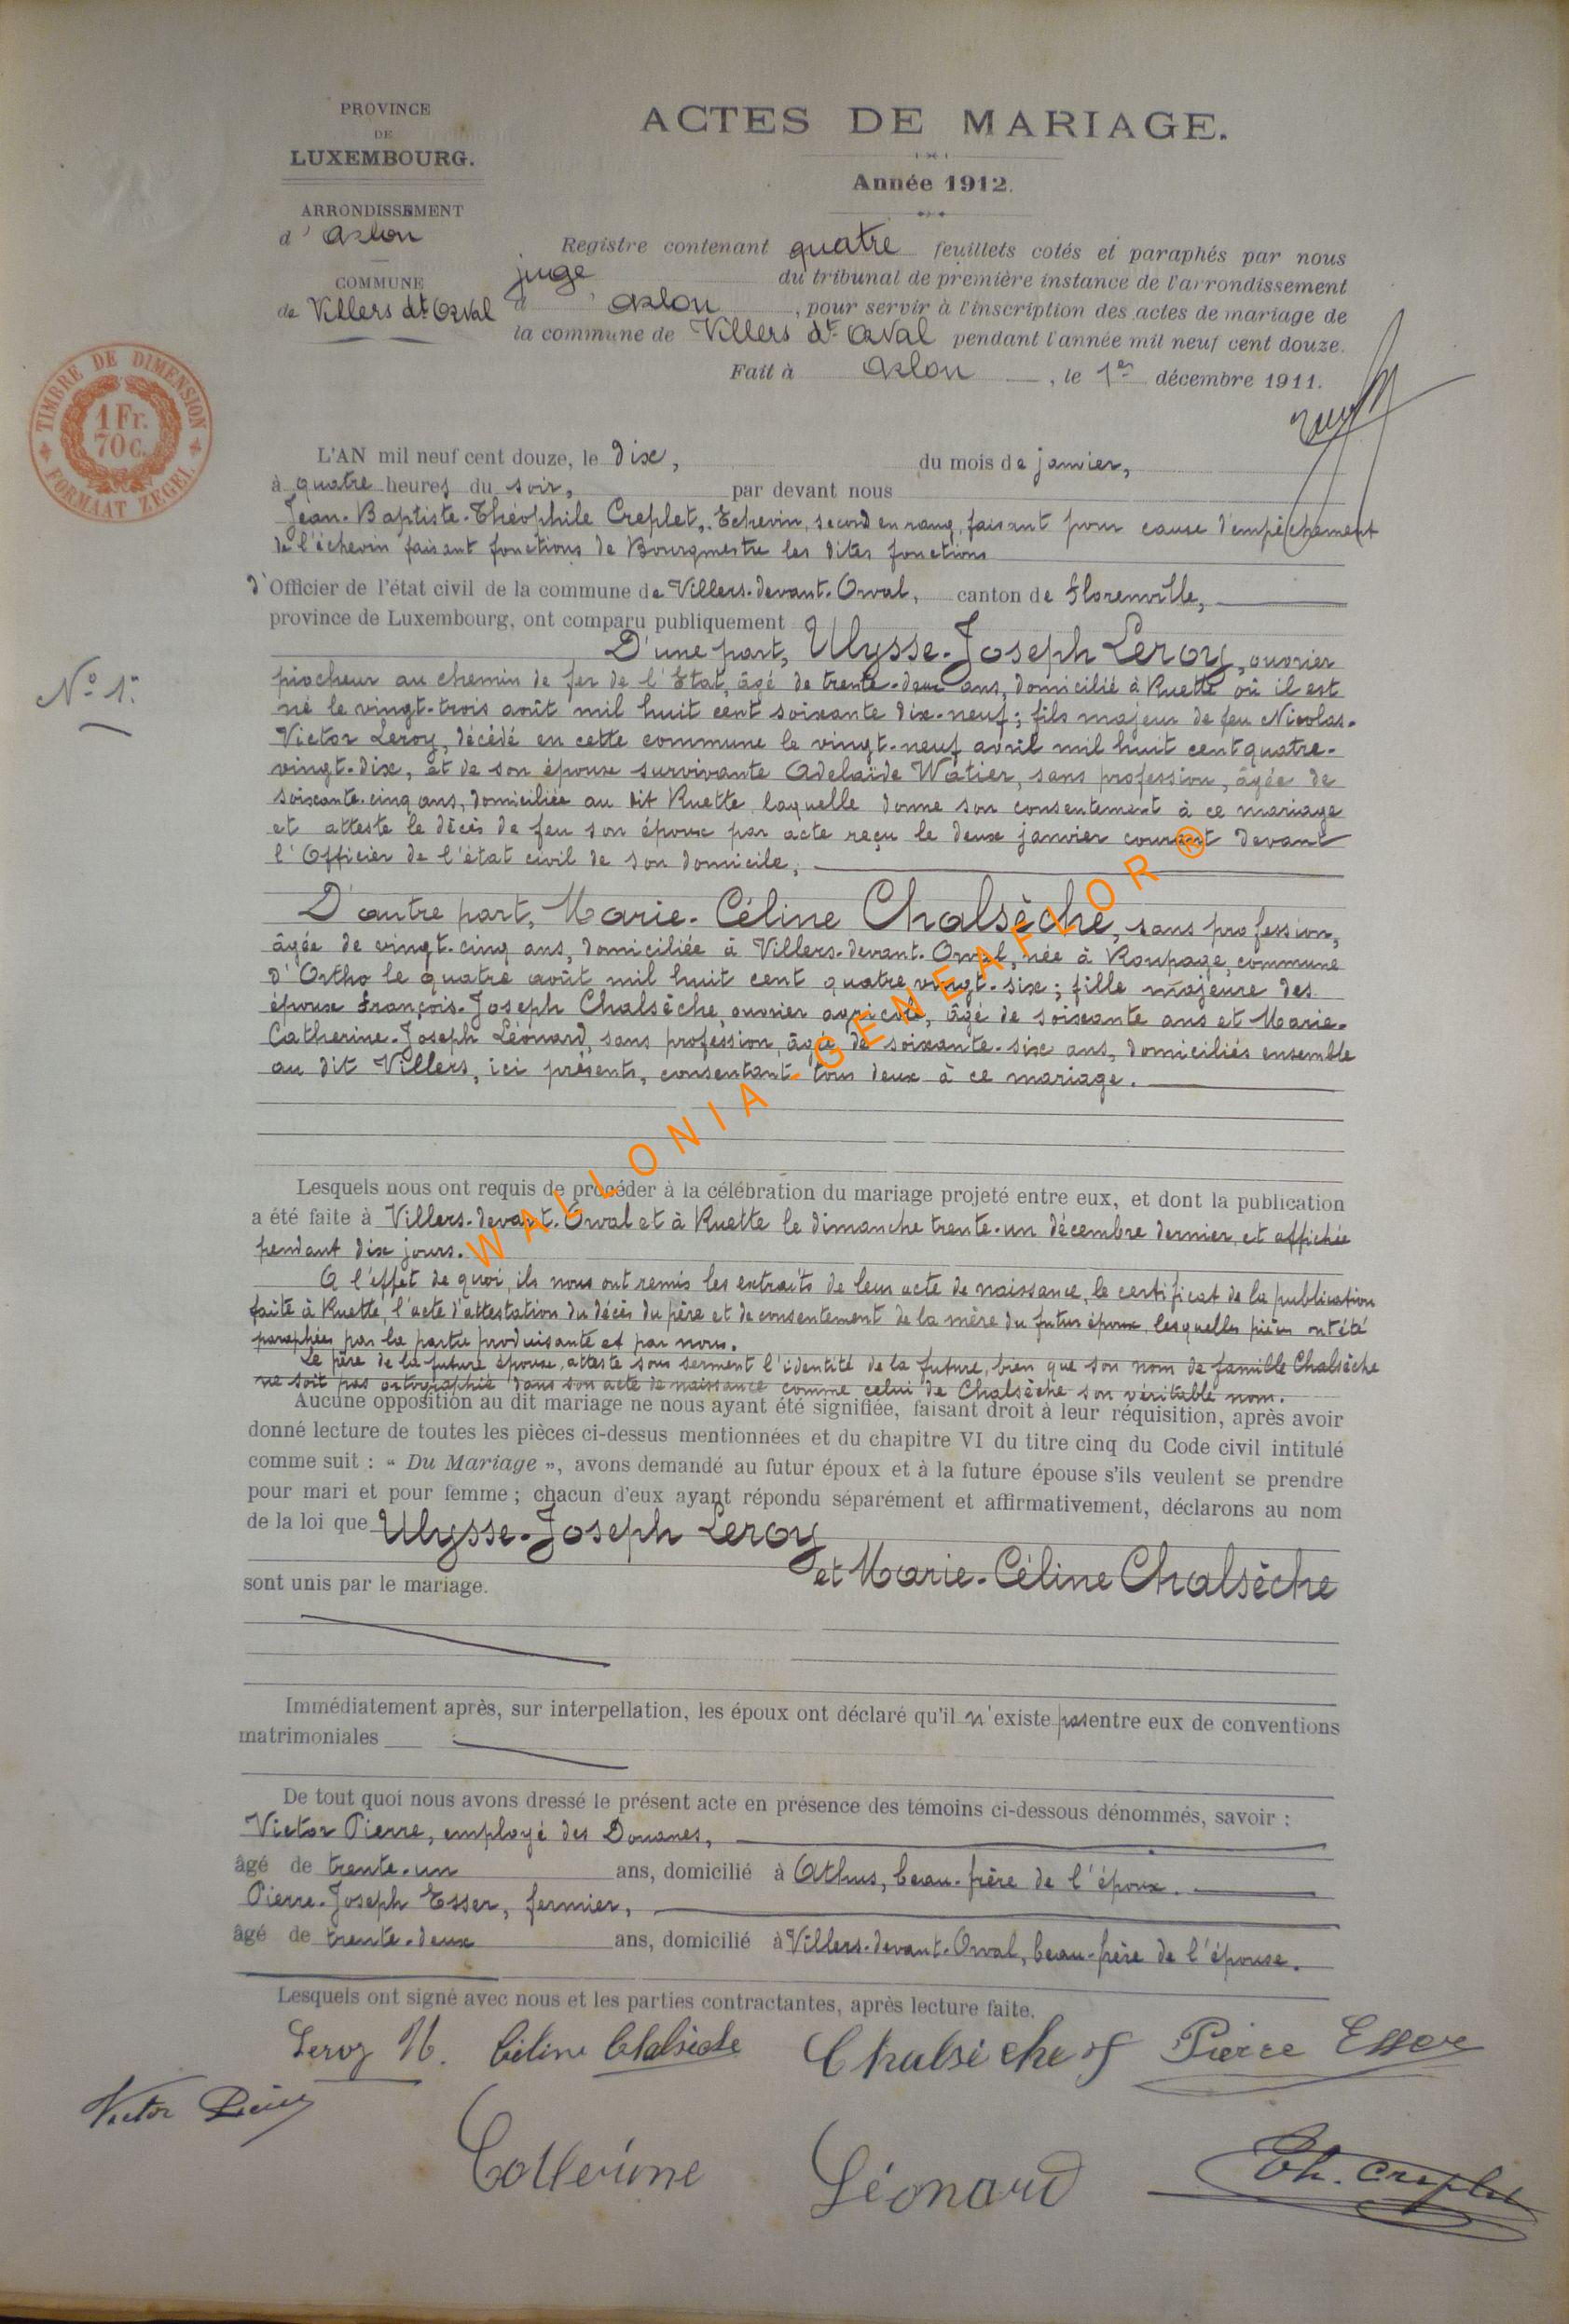 PROVINCE
DE
LUXEMBOURG.
ARRONDISSEMENT
d'Arlon
COMMUNE
de Villers dt Orval
ACTES DE MARIAGE.
Année 1912.
Registre contenant quatre feuillets cotés et paraphés par nous
juge du tribunal de première instance de l'arrondissement
d'Arlon, pour servir à l'inscription des actes de mariage de
la commune de Villers dt Orval pendant l'année mil neuf cent douze.
Fait à Arlon, le 1er décembre 1911.
TIMBRE DE DIMENSION
1 Fr.
70 c.
FORMAAT ZEGEL
L'AN mil neuf cent douze, le dix, du mois de janvier,
à quatre heures du soir, par devant nous
Jean-Baptiste-Théophile Creplet, Echevin, second en rang, faisant pour cause d'empêchement
de l'échevin faisant fonctions de Bourgmestre les dites fonctions
d'Officier de l'état civil de la commune de Villers-devant-Orval, canton de Florenville,
province de Luxembourg, ont comparu publiquement
N° 1.
D'une part, Ulysse-Joseph Leroy, ouvrier
piocheur au chemin de fer de l'Etat, âgé de trente-deux ans, domicilié à Ruette où il est
né le vingt-trois août mil huit cent soixante dix-neuf; fils majeur de feu Nicolas-
Victor Leroy, décédé en cette commune le vingt-neuf avril mil huit cent quatre-
vingt-dix, et de son épouse survivante Adelaïde Watier, sans profession, âgée de
soixante-cinq ans, domiciliée au dit Ruette, laquelle donne son consentement à ce mariage
et atteste le décès de feu son époux par acte reçu le deux janvier courant devant
l'Officier de l'état civil de son domicile,
D'autre part, Marie-Céline Chalsèche, sans profession,
âgée de vingt-cinq ans, domiciliée à Villers-devant-Orval, née à Roupage, commune
d'Ortho le quatre août mil huit cent quatre vingt-six; fille majeure des
époux François-Joseph Chalsèche, ouvrier agricole, âgé de soixante ans et Marie-
Catherine-Joseph Léonard, sans profession, âgée de soixante-six ans, domiciliés ensemble
au dit Villers, ici présents, consentant tous deux à ce mariage.
WALLONIA-GENEAFLOR®
Lesquels nous ont requis de procéder à la célébration du mariage projeté entre eux, et dont la publication
a été faite à Villers-devant-Orval et à Ruette le dimanche trente-un décembre dernier, et affichée
pendant dix jours.
A l'effet de quoi, ils nous ont remis les extraits de leur acte de naissance, le certificat de la publication
faite à Ruette, l'acte d'attestation du décès du père et de consentement de la mère du futur époux, lesquelles pièces ont été
paraphées par la partie produisante et par nous.
Le père de la future épouse, atteste sous serment l'identité de la future, bien que son nom de famille Chalsèche
ne soit pas ortographié dans son acte de naissance comme celui de Chalsèche son véritable nom.
Aucune opposition au dit mariage ne nous ayant été signifiée, faisant droit à leur réquisition, après avoir
donné lecture de toutes les pièces ci-dessus mentionnées et du chapitre VI du titre cinq du Code civil intitulé
comme suit : « Du Mariage », avons demandé au futur époux et à la future épouse s'ils veulent se prendre
pour mari et pour femme ; chacun d'eux ayant répondu séparément et affirmativement, déclarons au nom
de la loi que Ulysse-Joseph Leroy
et Marie-Céline Chalsèche
sont unis par le mariage.
Immédiatement après, sur interpellation, les époux ont déclaré qu'il n'existe pas entre eux de conventions
matrimoniales
De tout quoi nous avons dressé le présent acte en présence des témoins ci-dessous dénommés, savoir :
Victor Pierre, employé des Douanes,
âgé de trente-un ans, domicilié à Athus, beau-frère de l'époux.
Pierre-Joseph Esser, fermier,
âgé de trente-deux ans, domicilié à Villers-devant-Orval, beau-frère de l'épouse.
Lesquels ont signé avec nous et les parties contractantes, après lecture faite.
Leroy U. Céline Chalsèche Chalsèche f Pierre Esser
Victor Pierre
Catterine Léonard Th. Creplet